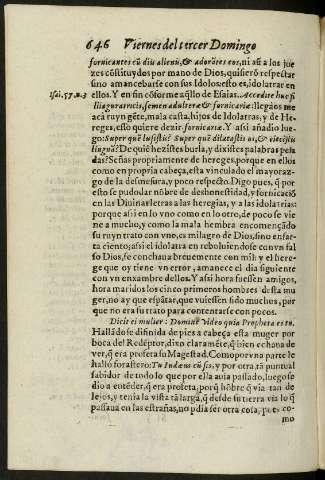 646 Viernes del tercer Domingo
fornicantes cũ dijs alienis, & adorātes eos, ni aſi a los jue
zes cōſtituydos por mano de Dios, quiſierō reſpectar
ſino amancebarſe con ſus Idolos: eſto es, idolatrar en
Iſai. 57. n. 3
ellos. Y en fin cōforme aq̃llo de Eſaias. Accedite huc fi
lij auguratricis, ſemen adulteræ, & fornicariæ: llegãos me
aca ruyn gẽte, mala caſta, hijos de Idolatras, y de He-
reges, eſto quiere dezir fornicariæ. Y aſsi añadio lue-
go: Super quẽ luſiſtis? Super quẽ dilataſtis os, & eieciſtis
linguã? De quiẽ hezíſtes burla, y dixiſtes palabras pela
das? Señas propriamente de hereges, porque en ellos
como en propria cabeça, eſta vinculado el mayoraz-
go de la deſmeſura, y poco reſpecto. Digo pues, q̃ por
eſto ſe pudo dar nōbre de deshoneſtidad, y fornicaciō
en las Diuinas letras a las heregias, y a las idolatrias:
porque aſsi en lo vno como en lo otro, de poco ſe vie
ne a mucho, y como la mala hembra encomençãdo
ſu ruyn trato con vno es milagro de Dios, ſino enſar-
ta ciento; aſsi el idolatra en reboluiendoſe con vn fal
ſo Dios, ſe conchaua breuemente con mil: y el here-
ge que oy tiene vn error, amanece el dia ſiguiente
con vn enxambre dellos. Y aſsi hora fueſſen amigos,
hora maridos los cinco primeros hombres deſta mu
ger, no ay que eſpãtar, que vuieſſen ſido muchos, por
que no era ſu trato para contentarſe con pocos.
Dicit ei mulier: Domine video quia Propheta es tu.
Hallãdoſe diſinida de pies a cabeça eſta muger por
boca del Redẽptor, dixo claramẽte, q̃ bien echaua de
ver, q̃ era profeta ſu Mageſtad. Como por vna parte le
hallò foraſtero: Tu Iudæus cũ ſis, y por otra tã puntual
ſabidor de todo lo que por ella auia paſſado, luego ſe
dio a entẽder, q̃ era profeta, porq̃ hōbre q̃ via tan de
lejos, y tenia la viſta tã larga, q̃ deſde ſu tierra vía lo q̃
paſſaua en las eſtrañas, no pdia ſer otra coſa, pues co-
mo